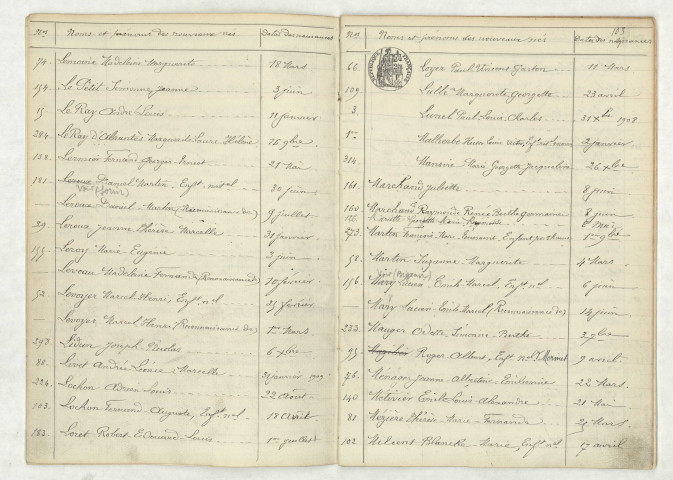 Nos Noms et prénoms des nouveaux nés. Dates des naissances
74. Madeleine Marguerite 18 Mars
154. Le Petit Simonne Jeanne 3 juin
15. Le Ray André Louis 11 janvier
284. Le Ray d'Abrantès Marguerite Laure Hélène 15 9bre
138. Fernand Georges Ernest 21 Mai
181. Leroux Daniel Martin, Enft. nat.el 30 juin
Leroux Daniel Martin (Reconnaissance de) 9 juillet
29. Leroux Jeanne Thérèse Marcelle 31 janvier
155. Leroy Marie Eugénie 3 juin
Madeleine Fernande (Reconnaissance) 10 février
52. Levoyer Marcel Henri, Enft. n.el 25 février
Levoyer Marcel Henri (Reconnaissance de) 1er Mars
298 Joseph Nicolas 6 xbre
80. Livet André Léonce Marcelle
224. Lochon Adrien Louis 22 Août
103. Lochon Fernand Auguste, Enft. n.el 18 avril
183. Loret Robert Edouard Louis 1er juillet
103
Nos Noms et prénoms des nouveaux nés Dates des naissances
66. Loyer Paul Vincent Gaston 11 Mars
109. Lulle Marguerite Georgette 23 avril
3. Lunel Paul Louis Charles 31 xbre 1908
1er Malherbe 2 janvier
314. Marie Georgette Jacqueline 26 xbre
161. Marchand Juliette 8 juin
160 Marchand Raymonde Renée Berthe Germaine 8 juin
126. Marie Raymonde 8 Mai
273. Martin François Marc Toussaint, Enfant posthume 1er 9bre
58. Martin Suzanne Marguerite 4 Mars
156. Mary Lucien Emile Marcel, Enft. n.el 6 juin
Mary Lucien Emile Marcel (Reconnaissance de) 14 juin
233. Mauger Odette Simonne Berthe 3 7bre
95. Roger Albert, Enft. n.el 9 avril
76. Jeanne Albertine 22 Mars
140 Métivier Emile Louis Alexandre 21 Mai
81 Mézière Thérèse Marie Fernande 25 Mars
102 Milcent Blanche Marie, Enft. n.el 17 avril